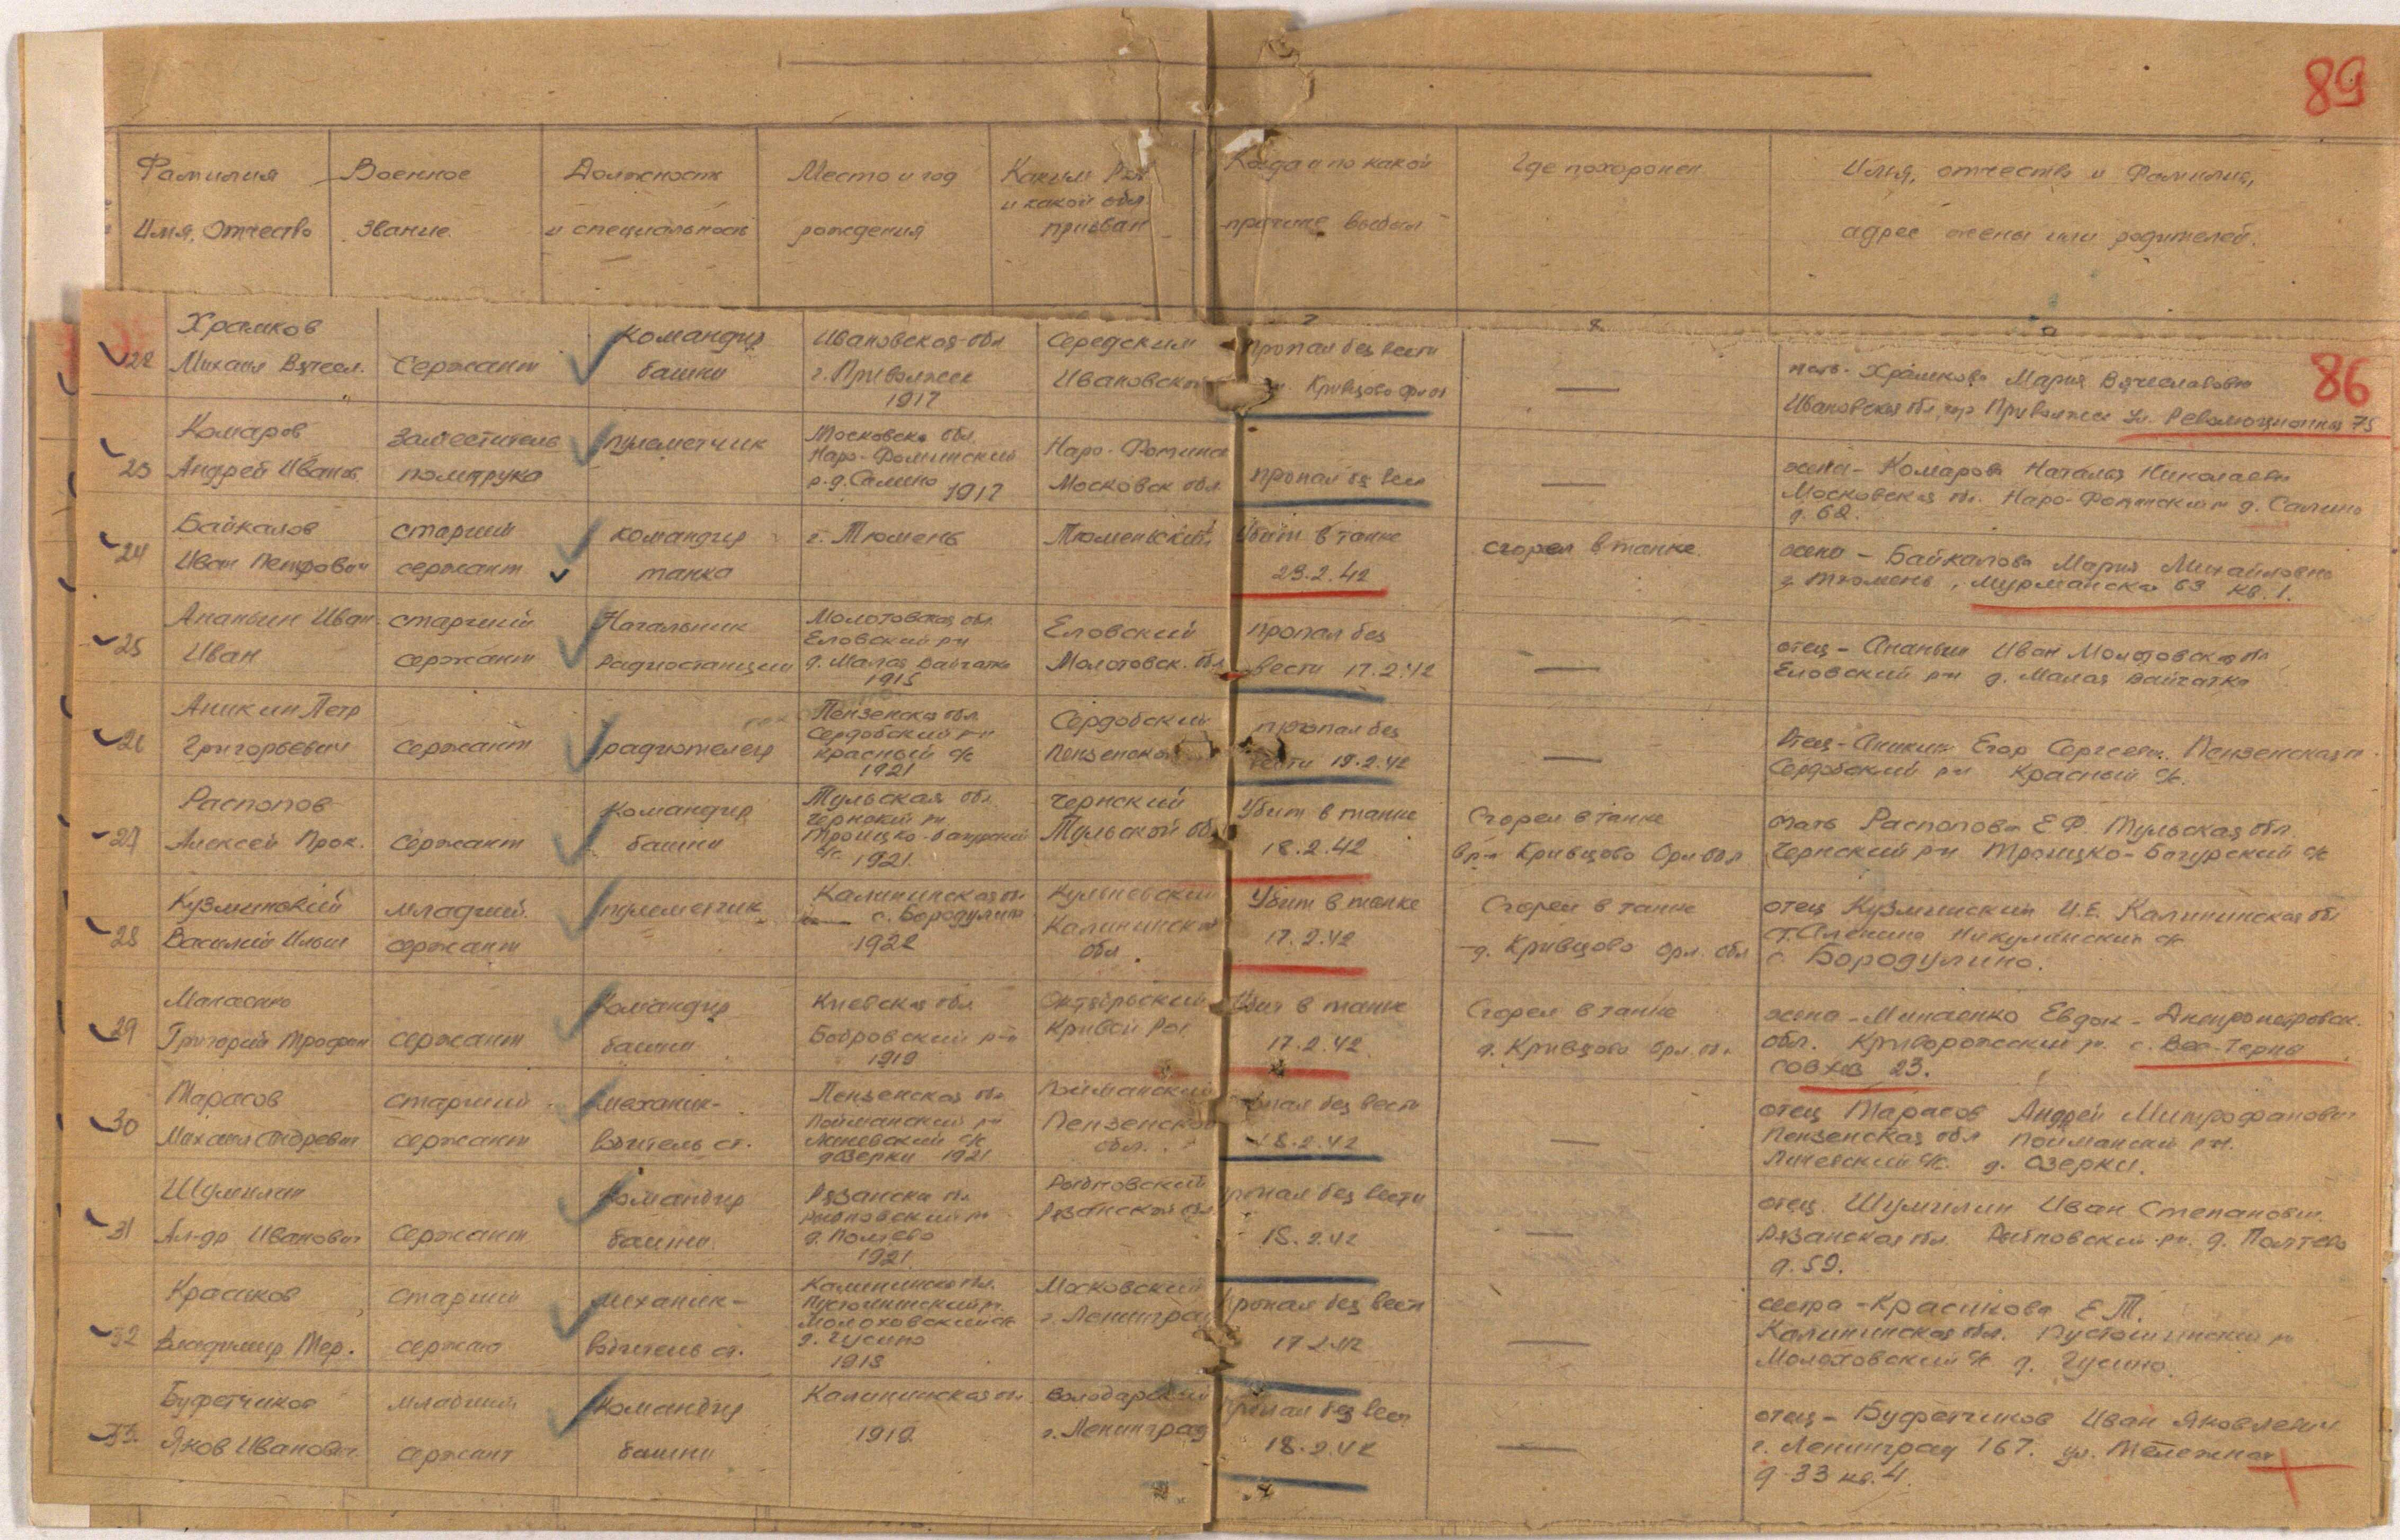 89
Фамилия
Имя, Отчество
Военное
Звание.
Должность
и специальность
Место и год
рождения
Каким Рвк
и какой обл.
призван
Когда и по какой
причине выбыл
Где похоронен
Имя, отчество и Фамилия,
адрес жены или родителей.
86
22
Храмков
Михаил Вячесл.
Сержант
Командир
башни
Ивановская обл
г. Приволжск
1917
Середским
Ивановской
пропал без вести
Кривцово
—
мать - Храмкова Мария Вячеславовн
Ивановская обл. гор Приволжск ул. Революционная 75
23
Комаров
Андрей Иванов.
Заместитель
политрука
пулеметчик
Московска обл.
Наро-Фоминский
р. д. Салино 1917
Наро-Фомина
Московск обл.
пропал без вест
—
жена - Комарова Наталья Николаевн
Московская обл. Наро-Фоминский д. Салино
д. 62.
24
Байкалов
Иван Петрович
старший
сержант
командир
танка
г. Тюмень
Тюменский
Убит в танке
23.2.42
сгорел в танке.
жена - Байкалова Мария Михайловна
г. Тюмень, Мурманска 63 кв. 1.
25
Ананьин Иван
Иван
старший
сержант
Начальник
Радиостанции
Молотовская обл.
Еловский р-н
д. Малая
1915
Еловский
Молотовск. обл
пропал без
вести 17.2.42
—
отец - Ананьин Иван Молотовская обл
Еловский р-н д. Малая
26
Аникин Петр
Григорьевич
сержант
радиотелегр
Пензенская обл.
Сердобский р-н
Красный с/с
1921
Сердобский
Пензенской
пропал без
вести 18.2.42
—
Отец - Аникин Егор Сергеевич. Пензенская о
Сердобский р-н Красный с/с.
27
Распопов
Алексей Прок.
сержант
Командир
башни
Тульская обл.
Чернский р-н
Троицко-Бачурский
с/с 1921.
Чернский
Тульской об.
Убит в танке
18.2.42
Сгорел в танке
в р-н Кривцово Орл обл
мать Распопова Е Ф. Тульская обл.
Чернский р-н Троицко-Бачурский с/с
28
Кузминский
Василий Ильич
младший
сержант
пулеметчик
Калининская обл
с. Бородулино
1922
Калининской
обл.
Убит в танке
17.2.42
Сгорел в танке
д. Кривцово Орл. обл
отец Кузминский И.Е. Калининская обл
Никулинский с/с
с Бородулино.
29
Григорий Трофим
сержант
Командир
башни
Киевская обл
Бобровский р-н
1919
Октябрьский
Кривой Рог
Убит в танке
17.2.42
Сгорел в танке
д. Кривцово Орл. обл.
жена - Минаенко Евдок - Днепропетровск.
обл. Криворожский р. с. Вес-Терны
совхоз 23.
30
Тарасов
Михаил Андреевич
старший
сержант
механик-
водитель ст.
Пензенская обл.
Пойманский р-н
с/с
д Озерки 1921
Пойманский
Пензенской
обл.
пропал без вести
18.2.42
—
отец Тарасов Андрей Митрофанович
Пензенская обл Поймански р-н.
с/с. д. Озерки.
31
Шумилин
Ал-др Иванович
Сержант
Командир
башни.
Рязанска обл
Рыбновский р-н
д. Полтево
1921
Рыбновский
Рязанской обл
пропал без вести
18.2.42
—
отец. Шумилин Иван Степанович.
Рязанская обл. Рыбновский р-н. д. Полтево
д. 59.
32
Красиков
Владимир Тер.
Старший
сержант
механик-
водитель ст.
Калининска обл.
Пустошинский р.
Молоховский с/с
д. Гусино
1918
Московский
г. Ленинград
Пропал без вест
17.2.42
—
сестра - Красикова Е.Т.
Калининская обл. Пустошинский р
Молоховский с/с д. Гусино.
33.
Буфетчиков
Яков Иванович.
младший
сержант
Командир
башни
Калининская обл
1919
Володарский
г. Ленинград
пропал без вест
18.2.42
—
отец - Буфетчиков Иван Яковлевич
г. Ленинград 167. ул. Тележная
д-33 кв. 4.